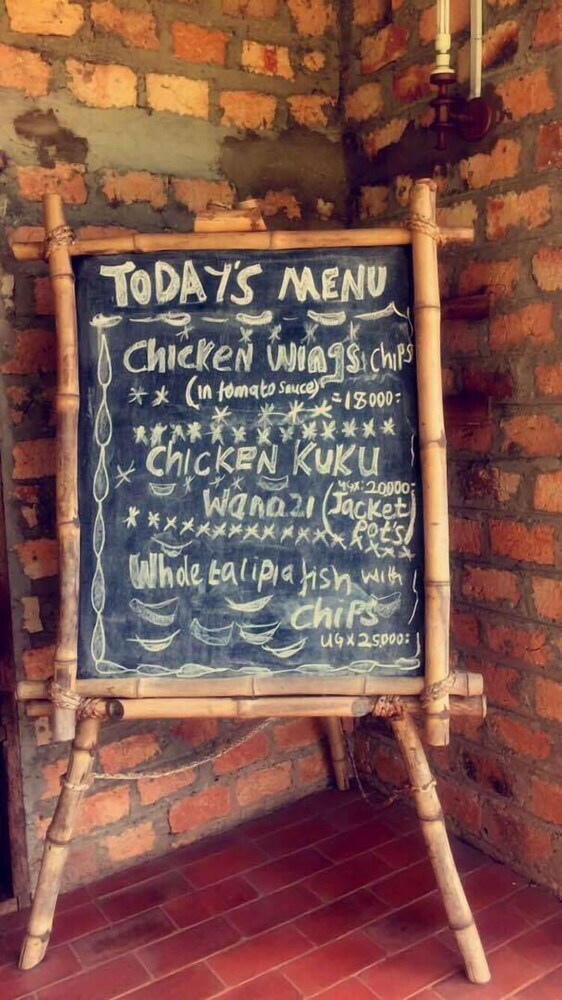 TODAY'S MENU
Chicken Wings, Chips
(in tomato sauce)
=18000=
CHICKEN KUKU
Ugx: 20000=
Wanazi (Jacket
Pot's)
Whole talipia fish with
Chips
UGX 25000=